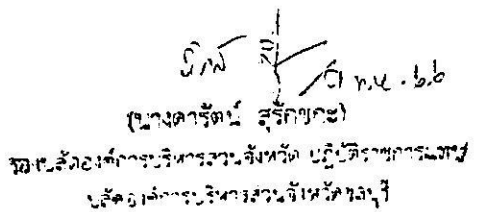 (นางดารัตน์ สุรักขกะ)
รองปลัดองค์การบริหารส่วนจังหวัด ปฏิบัติราชการแทน
ปลัดองค์การบริหารส่วนจังหวัดชลบุรี